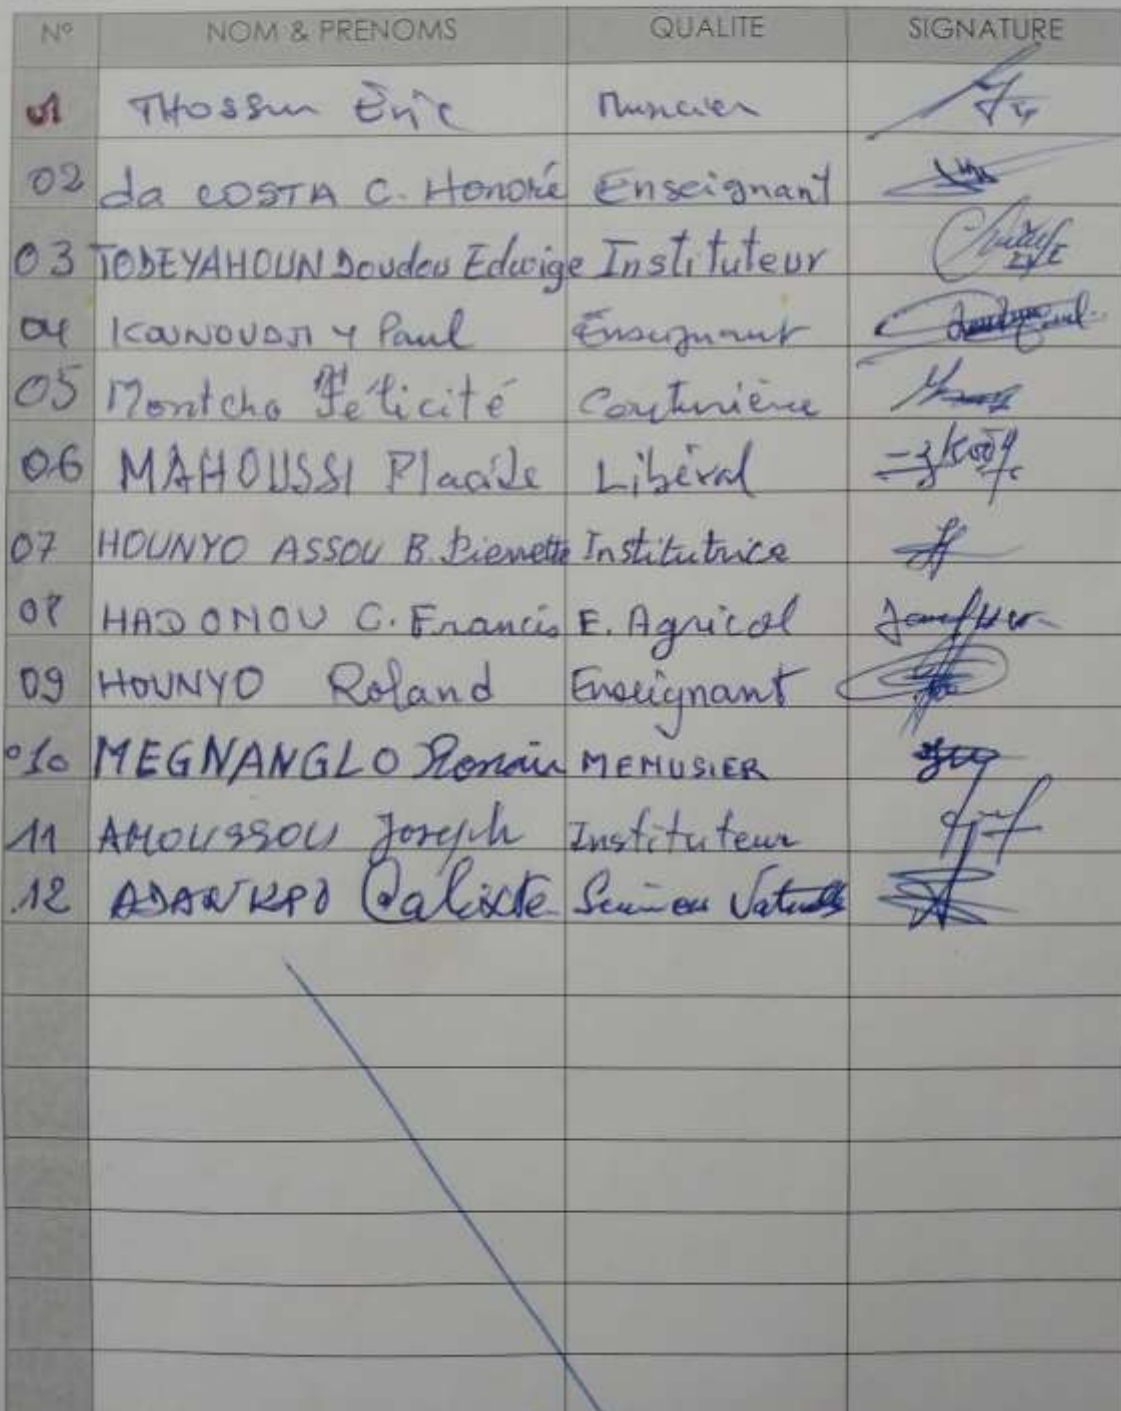 N° NOM & PRENOMS QUALITE SIGNATURE
01 THossun Éric Musicien
02 da COSTA C. Honoré Enseignant
03 TODEYAHOUN Doudou Edwige Instituteur
04 KOUNOUDJI Y Paul Enseignant
05 Montcho Félicité Couturière
06 MAHOUSSI Placide Libéral
07 HOUNYO ASSOU B. Pierrette Institutrice
08 HADONOU C. Francis E. Agricol
09 HOUNYO Roland Enseignant
010 MEGNANGLO Romain MENUSIER
11 AMOUSSOU Joseph Instituteur
12 ADANKPO Calixte Naturelles